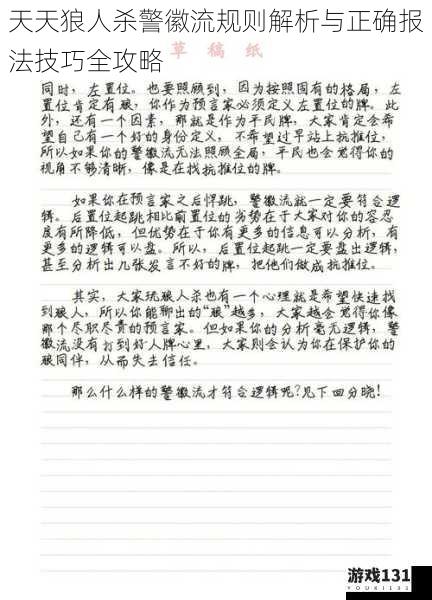 天天狼人杀警徽流规则解析与正确报
法技巧全攻略
草 稿 纸
同时，左置位。也要照顾到，因为按照固有的格局，左
置位肯定有狼，你作为预言家必须定义左置位的牌。此
外，还有一个因素，那就是作为平民牌，大家肯定会希
望自己有一个好的身份定义，不希望过早站上抗推位，
所以如果你的警徽流无法照顾全局，平民也会觉得你的
视角不够清晰，像是在找抗推位的牌。
如果你在预言家之后悍跳，警徽流就一定要符合逻
辑。后置位起跳相比前置位的劣势在于大家对你的容忍
度有所降低，但优势在于你有更多的信息可以分析，有
更多的逻辑可以盘。所以，后置位起跳一定要盘出逻辑，
甚至分析出几张发言不好的牌，把他们做成抗推位。
其实，大家玩狼人杀也有一个心理就是希望快速找
到狼人，所以你能聊出的“狼”越多，大家越会觉得你像
那个尽职尽责的预言家。但如果你的分析毫无逻辑，警
徽流没有打到好人牌心里，大家则会认为你在保护你的
狼同伴，从而失去信任。
那么什么样的警徽流才符合逻辑呢？见下回分晓！
游戏131